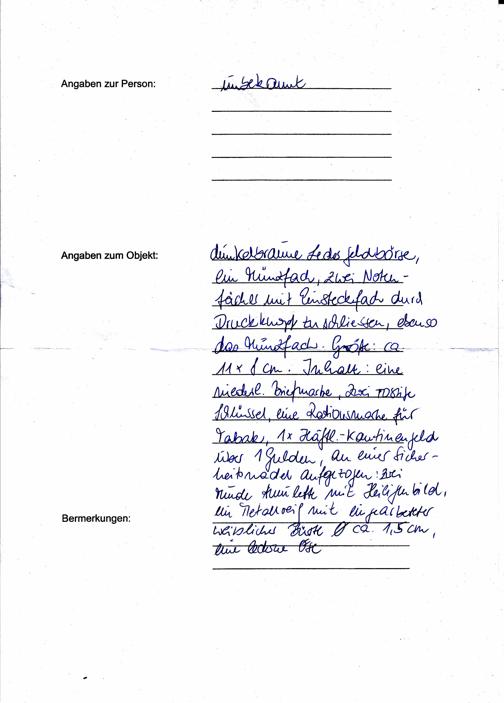 Angaben zur Person:
unbekannt
Angaben zum Objekt:
dunkelbraune Ledergeldbörse,
ein Münzfach, zwei Noten-
fächer mit Einsteckfach durch
Druckknopf zu schliessen, ebenso
das Münzfach. Größe: ca
11 x 8 cm. Inhalt: eine
niederl. Briefmarke, zwei
Schlüssel, eine Rationsmarke für
Tabak, 1x Häftl.-Kantinengeld
über 1 Gulden, an einer Sicher-
heitsnadel aufgezogen: zwei
runde Amulette mit Heiligenbild,
ein Metallreif mit eingearbeiteter
weiblicher Büste Ø ca. 1,5 cm,
eine lederne Öse
Bermerkungen: